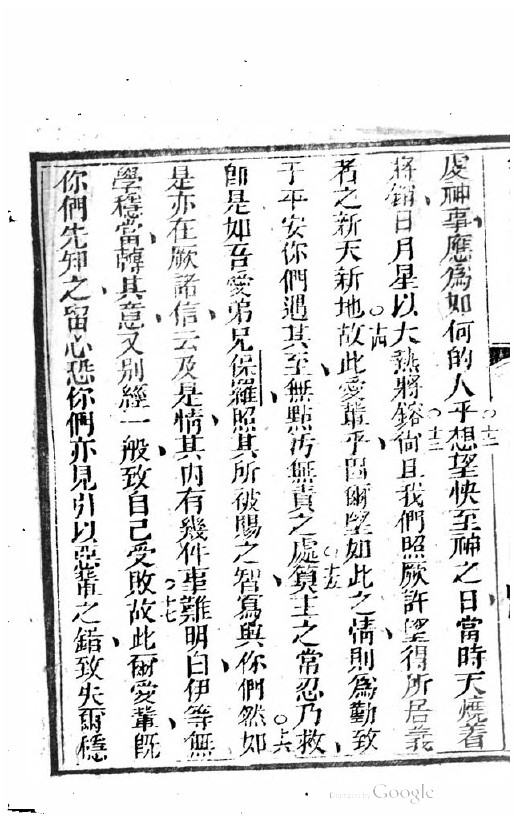 虔神事應為如何的人乎○十二想望快至神之日當時天燒着
將銷日月星以大熱將鎔○十三尚且我們照厥許望得所居義
者之新天新地○十四故此愛輩乎因爾望如此之情則為勤致
于平安你們遇其至無點污無責之處○十五算主之常忍乃救
即是如吾愛弟兄保羅照其所被賜之智寫與你們然○十六如
是亦在厥諸信云及是情其內有幾件事難明白伊等無
學穩當轉其意又別經一般致自己受敗○十七故此爾愛輩既
你們先知之留心恐你們亦見引以惡輩之錯致失爾穩
Digitized by Google